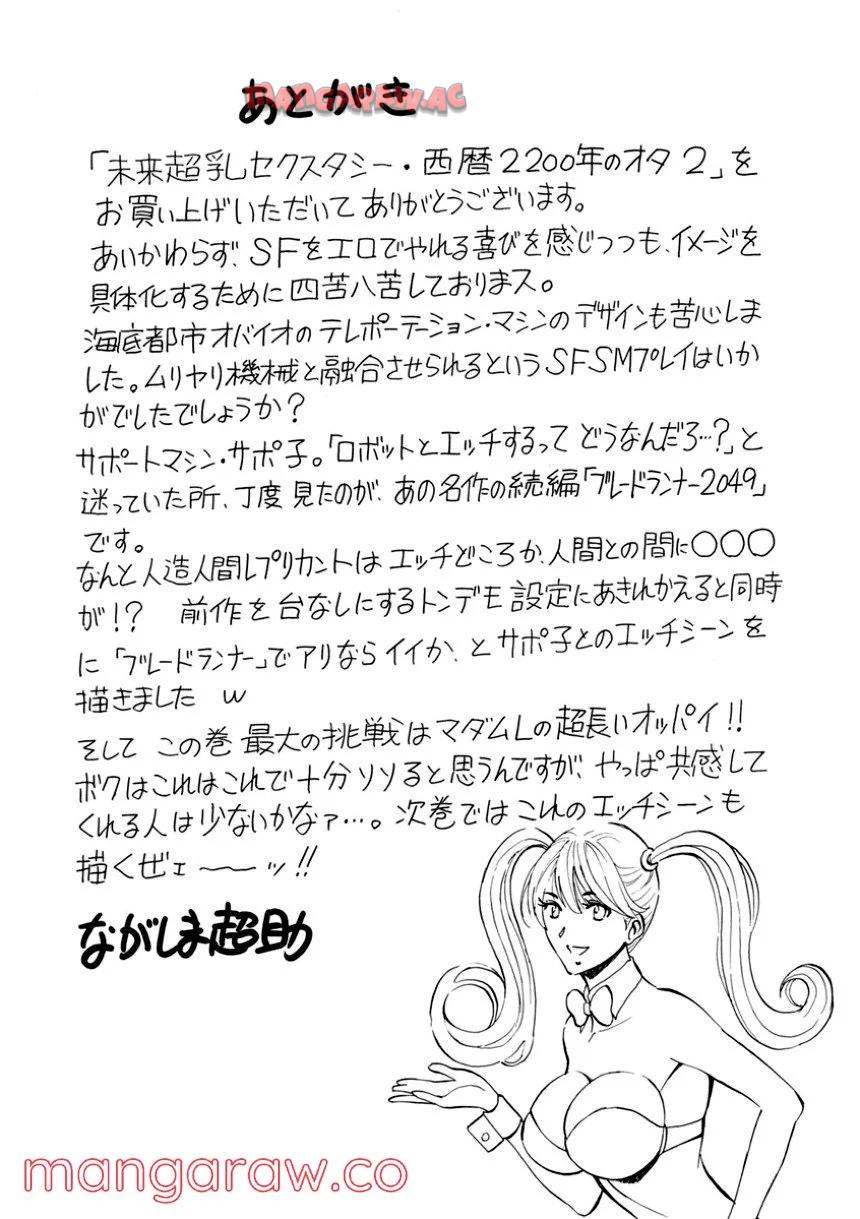 あとがき
MANGARAW.AC
「未来超乳セクスタシー・西暦2200年のオタ 2」を
お買い上げいただいてありがとうございます。
あいかわらず、SFをエロでやれる喜びを感じつつも、イメージを
具体化するために四苦八苦しておりまス。
海底都市オバイオのテレポーテーション・マシンのデザインも苦心しま
した。ムリヤリ機械と融合させられるというSFSMプレイはいか
がでしたでしょうか?
サポートマシン・サポ子。「ロボットとエッチするって どうなんだろ…?」と
迷っていた所、丁度見たのが、あの名作の続編「ブレードランナー2049」
です。
なんと人造人間レプリカントは エッチどころか、人間との間に〇〇〇
が!? 前作を台なしにするトンデモ設定にあきれかえると同時
に「ブレードランナー」でアリならイイか、とサポ子とのエッチシーンを
描きました w
そして この巻 最大の挑戦はマダムLの超長いオッパイ!!
ボクはこれはこれで十分ソソると思うんですが、やっぱ共感して
くれる人は少ないかなァ…。次巻ではこれのエッチシーンも
描くぜェ〜〜ッ!!
ながしま超助
mangaraw.co